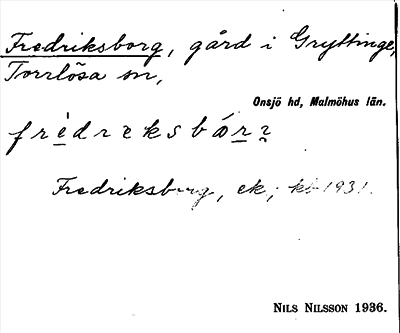 Fredriksborg, gård i Gryttinge,
Torrlösa sn,
Onsjö hd, Malmöhus län.
Fredriksborg, ek.; kb 1931.
NILS NILSSON 1936.